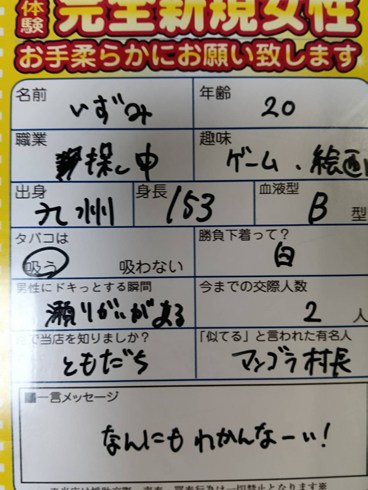 体験
完全新規女性
お手柔らかにお願い致します
名前 いずみ
年齢 20
職業 探し中
趣味 ゲーム、絵画
出身 九州
身長 153
血液型 B 型
タバコは 吸う 吸わない
勝負下着って? 白
男性にドキっとする瞬間
今までの交際人数 2 人
で当店を知りましたか? ともだち
「似てる」と言われた有名人 マンゴラ村長
■一言メッセージ
なんにもわかんなーい!